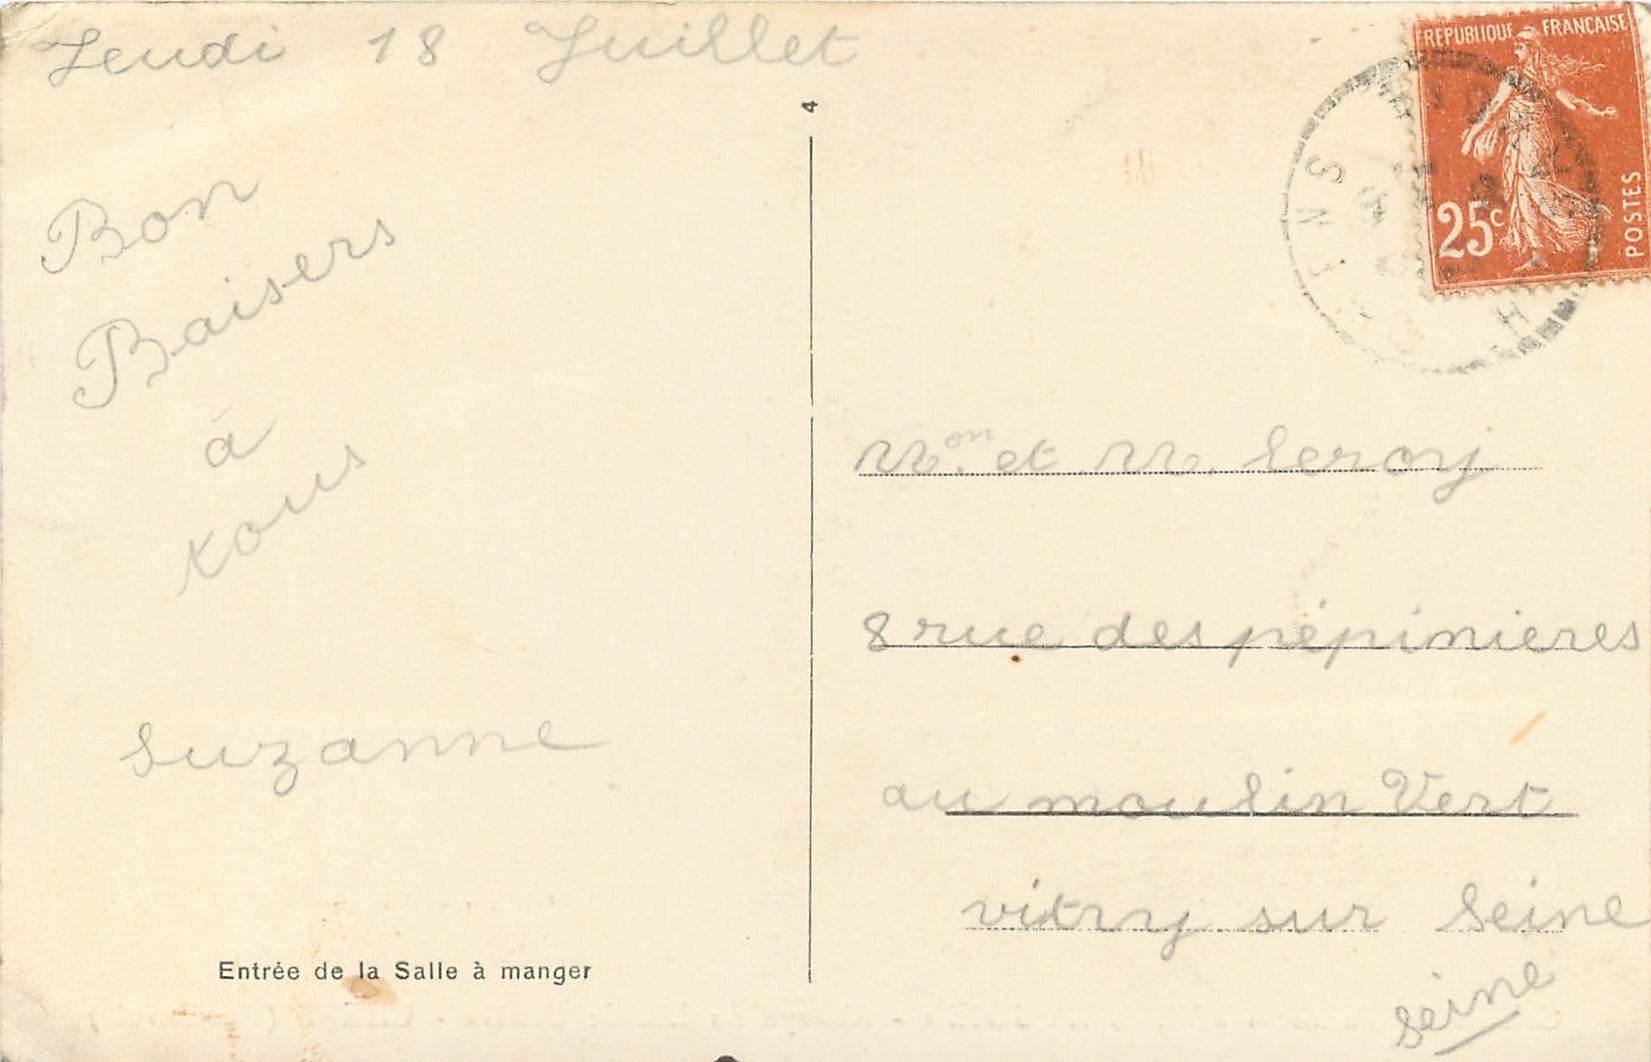 Jeudi 18 Juillet
Bon
Baisers
à
tous
Suzanne
Entrée de la Salle à manger
4
REPUBLIQUE FRANÇAISE
25c
POSTES
Mon. et M. Leroy
8 rue des pépinieres
au moulin Vert
vitry sur Seine
Seine